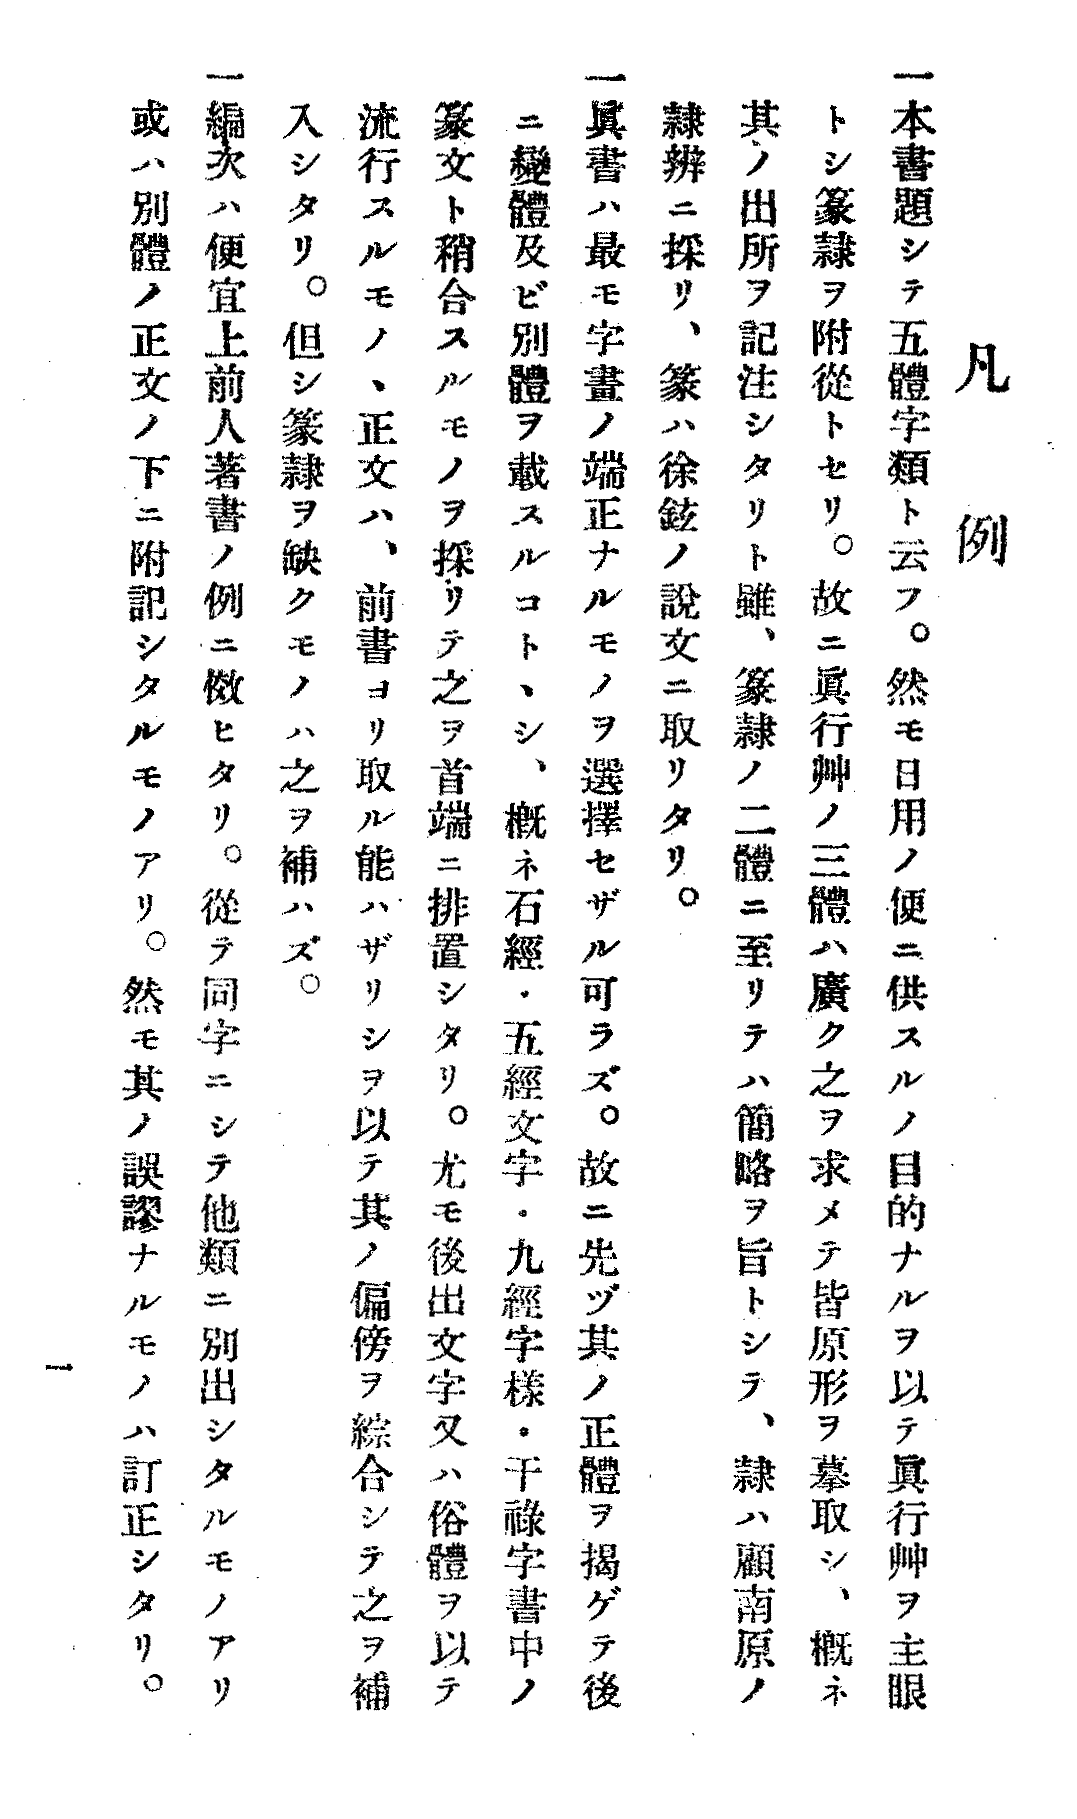 凡例
一本書題シテ五體字類ト云フ。然モ日用ノ便ニ供スルノ目的ナルヲ以テ眞行艸ヲ主眼
トシ篆隷ヲ附從トセリ。故ニ眞行艸ノ三體ハ廣ク之ヲ求メテ皆原形ヲ摹取シ、概ネ
其ノ出所ヲ記注シタリト雖、篆隷ノ二體ニ至リテハ簡略ヲ旨トシテ、隷ハ顧南原ノ
隷辨ニ採リ、篆ハ徐鉉ノ說文ニ取リタリ。
一眞書ハ最モ字畫ノ端正ナルモノヲ選擇セザル可ラズ。故ニ先ヅ其ノ正體ヲ揭ゲテ後
ニ變體及ビ別體ヲ載スルコトヽシ、概ネ石經・五經文字・九經字樣・干祿字書中ノ
篆文ト稍合スルモノヲ採リテ之ヲ首端ニ排置シタリ。尤モ後出文字又ハ俗體ヲ以テ
流行スルモノヽ正文ハ、前書ヨリ取ル能ハザリシヲ以テ其ノ偏傍ヲ綜合シテ之ヲ補
入シタリ。但シ篆隷ヲ缺クモノハ之ヲ補ハズ。
一編次ハ便宜上前人著書ノ例ニ倣ヒタリ。從テ同字ニシテ他類ニ別出シタルモノアリ
或ハ別體ノ正文ノ下ニ附記シタルモノアリ。然モ其ノ誤謬ナルモノハ訂正シタリ。
一